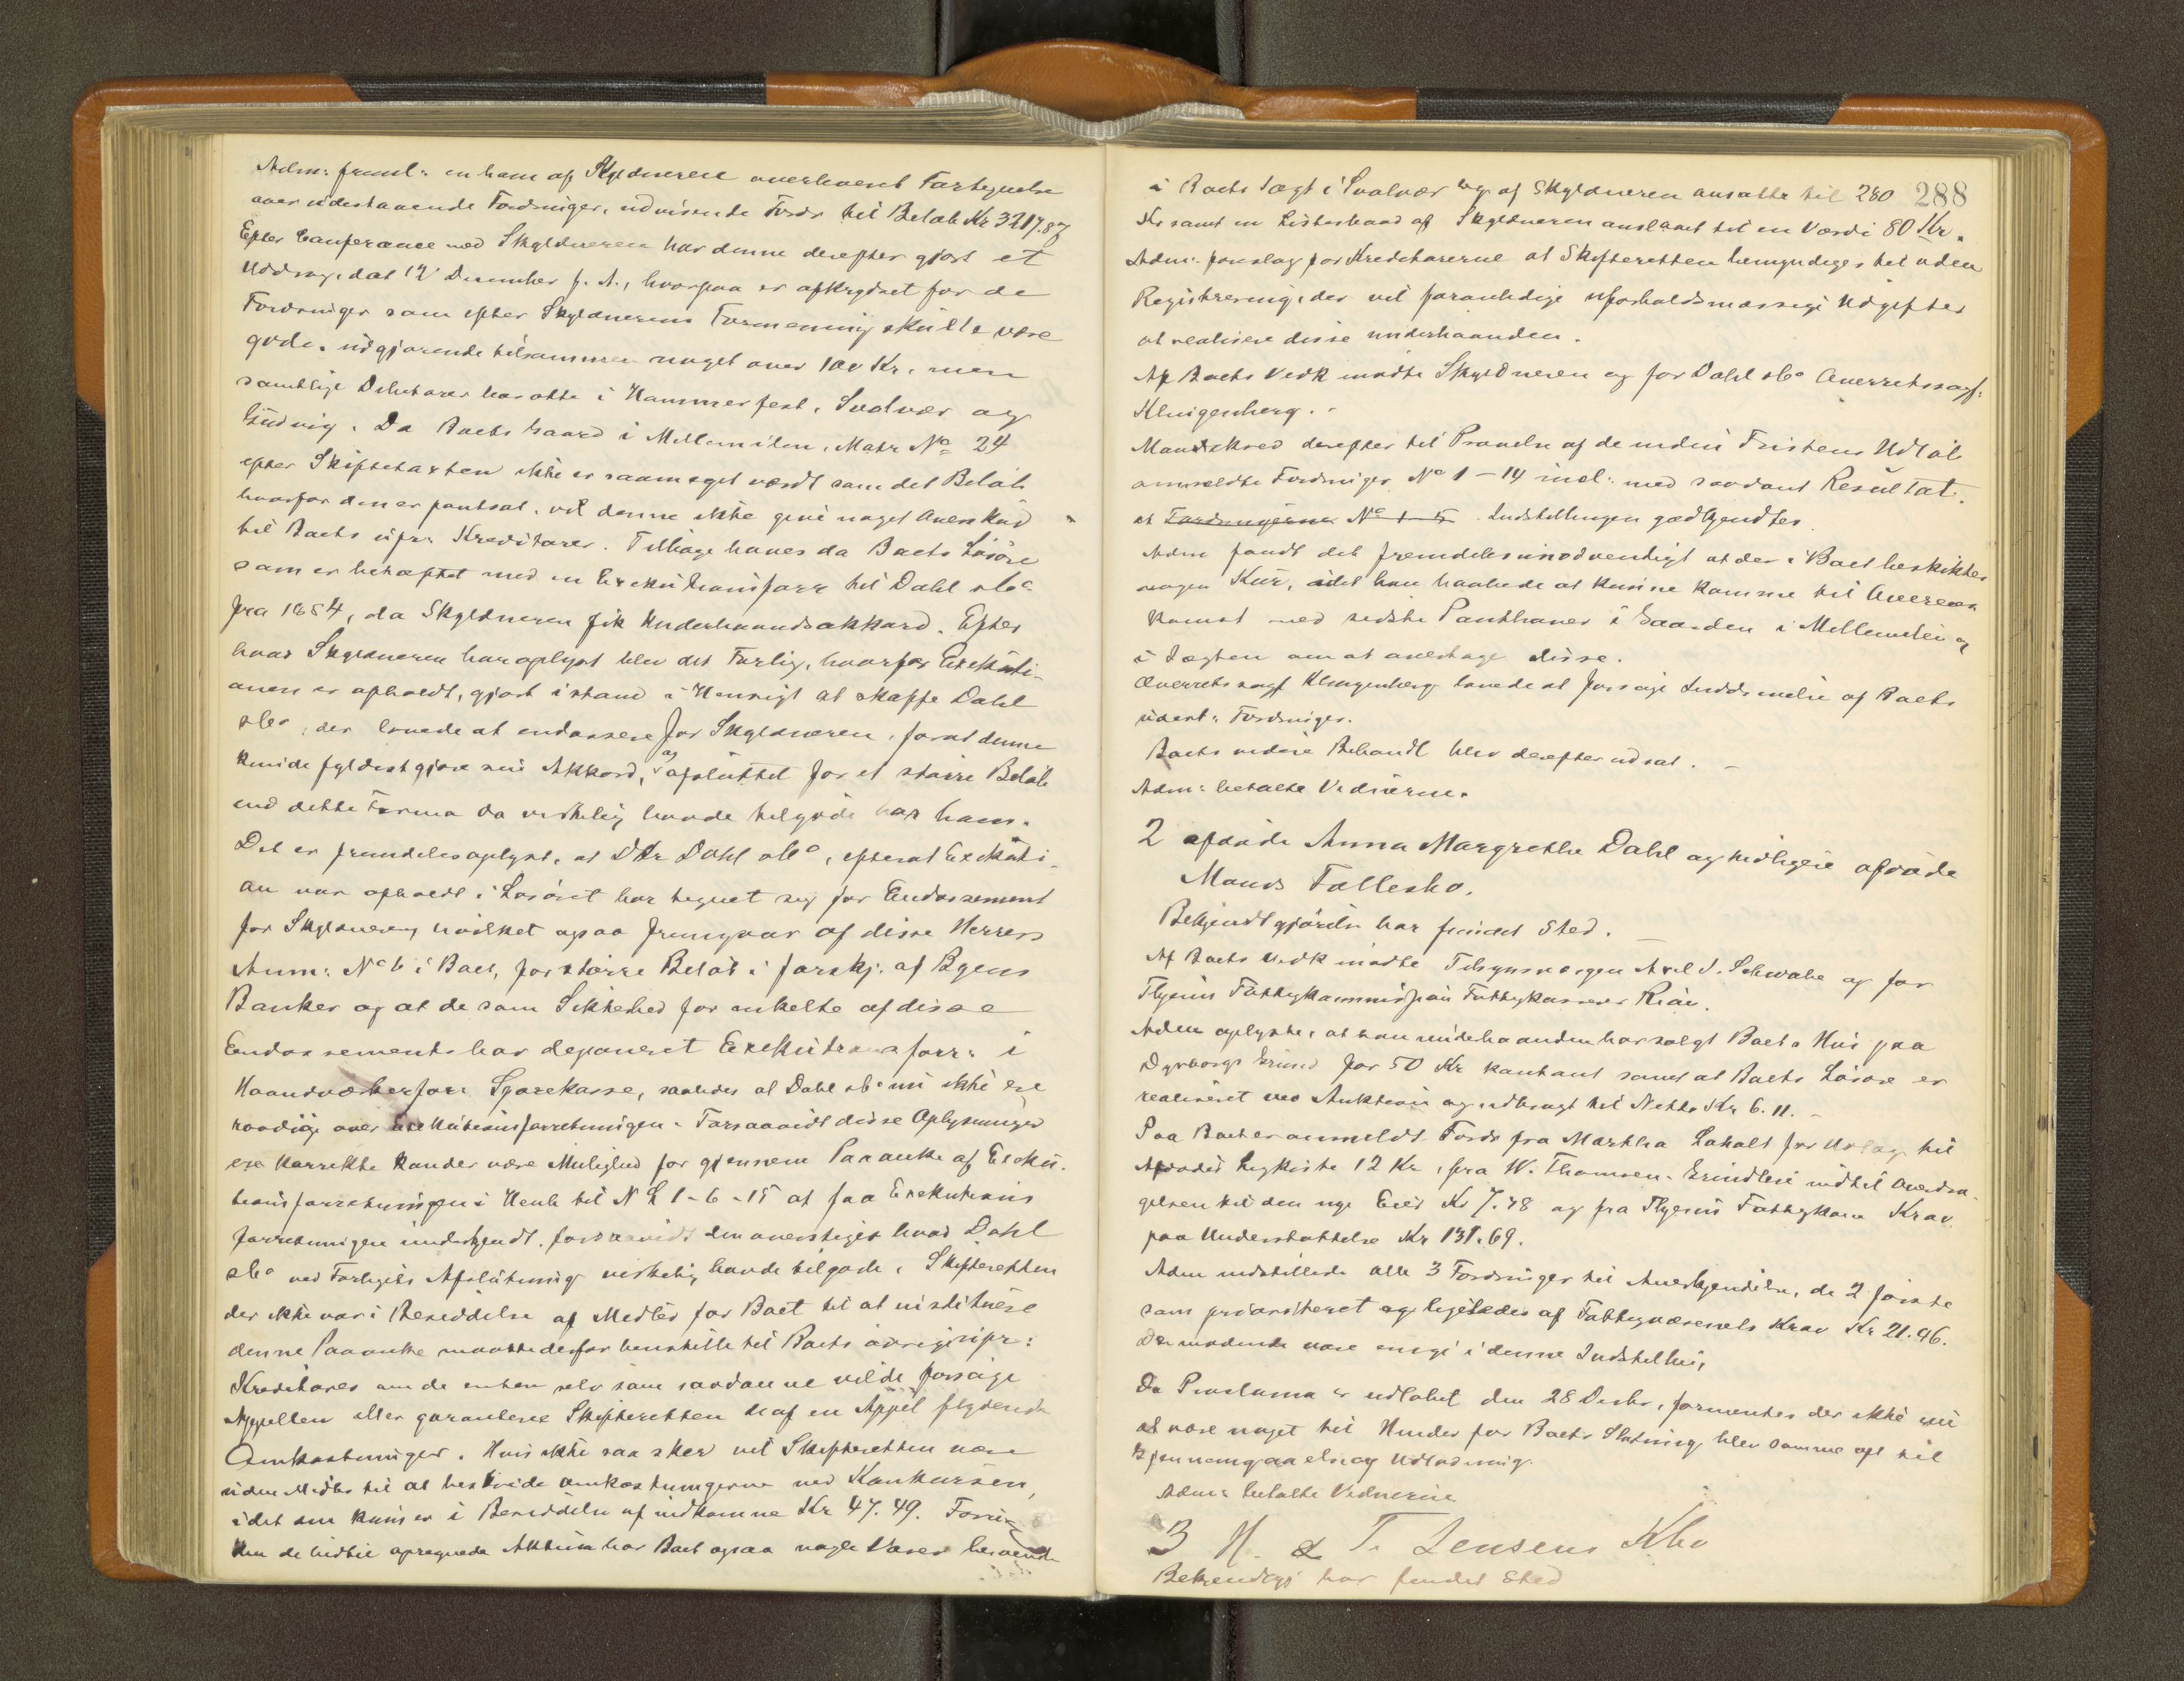 Adm: freml: en ham af Skyldneren overleveret Fortegnelse
over udestaaende Fordringer, udvisende Fordr til Beløb Kr 3217.87
Efter Conference med Skyldneren har denne derefter gjort et
Uddrag, dat 12 December f. A., hvorpaa er afkrydset for de
Fordringer som efter Skyldnerens Formening skulle være
gode, udgjørende tilsammen noget over 100 Kr, men
samtlige Debitorer bosatte i Hammerfest, Svolvær og
Gudvig. Da Boets Gaard i Mellemilen, Matr No 24
efter Skiftetaxten ikke er saameget værdt som det Beløb
hvorfor den er pantsat, vil denne ikke give noget Overskud
til Boets upr: Kreditorer. Tilbage haves da Boets Løsøre
som er behæftet med en Exekutionsforr til Dahl &Co
fra 1884, da Skyldneren fik Underhaandsakkord. Efter
hvad Skyldneren har oplyst blev det Forlig, hvorfor Exekuti-
onen er afholdt, gjort istand i Hensigt at skaffe Dahl
&Co, der lovede at endossere for Skyldneren, forat denne
kunde fyldestgjøre sin Akkord, og afsluttet for et større Beløb
end dette Firma da virkelig havde tilgode hos ham.
Det er fremdeles oplyst, at DHr Dahl &Co, efterat Exekuti-
on var afholdt i Løsøret har tegnet sig for Endossement
for Skyldneren, hvilket ogsaa fremgaar af disse Herrers
Anm: No 6 i Boet, for større Beløb i forskj. af Byens
Banker og at de som Sikkerhed for enkelte af disse
Endossements har deponeret Exekutionsforr: i
Haandværkerfor: Sparekasse, saaledes at Dahl &Co nu ikke ere
raadige over Exekutionsforretningen. Forsaavidt disse Oplysninger
ere korrekte kan der være Mulighed for gjennem Paaanke af Exeku-
tionsforretningen i Henh til N L 1-6-15 at faa Exekutions
forretningen underkjendt, forsaavidt den overstiger hvad Dahl
&Co ved Forligets Afslutning virkelig havde tilgode. Skifteretten
der ikke var i Besiddelse af Midler for Boet til at institúere
denne Paaanke maatte derfor henstille til Boets øvrige upr:
Kreditorer om de enten selv som saadanne vilde forsøge
Appellen eller garantere Skifteretten de af en Appel flydende
Omkostninger. Hvis ikke saa sker vil Skifteretten være
uden Midler til at bestride Omkostningerne ved Konkursen,
idet den kun er i Besiddelse af indkomne Kr 47.49. Foru-
den de hidtil opregnede Aktiva har Boet ogsaa nogle Varer beroende
288
i Boets Jægt i Svolvær og af Skyldneren ansatte til 280
Kr samt en Listerbaad af Skyldneren anslaaet til en Værdi 80 Kr.
Adm: foreslog for Kreditorerne at Skifteretten bemyndiges til uden
Registrering, der vil foranledige uforholdsmæssige Udgifter
at realisere disse underhaanden.
Af Boets Vedk mødte Skyldneren og for Dahl &Co Overretssagf:
Klingenberg. -
Man skred derefter til Prøvelse af de inden Fristens Udløb
anmeldte Fordringer No 1 - 14 incl: med saadant Resultat,
at Fordringerne No 1-5 Indstillingen godkjendtes.
Adm fandt det fremdeles unødvendigt at der i Boet beskikkes
nogen Kur, idet han haabede at kunne komme til Overens
komst med sidste Panthaver i Gaarden i Mellemilen og
i Jægten om at overtage disse.
Overretssagf Klingenberg lovede at forsøge Inddrivelse af Boets
udest: Fordringer.
Boets videre Behandl blev derefter udsat. -
Adm: betalte Vidnerne.
2 afdøde Anna Margrethe Dahl og tidligere afdøde
Mands Fællesbo.
Bekjendtgjørelse har fundet Sted. -
Af Boets Vedk mødte Tilsynsværgen Axel S. Schwabe og for
Byens Fattigkommission Fattigkasserer
Adm oplyste, at han underhaanden har solgt Boets Hus paa
Dyrborgs Grund for 50 Kr kontant samt at Boets Løsøre er
realiseret ved Auktion og udbragt til Netto Kr 6.11. -
Paa Boet er anmeldt Fordr fra Martha Lakolt for Udlæg til
Afdødes Ligkiste 12 Kr, fra W. Thomsen Grundleie indtil Overdra-
gelsen til den nye Eier Kr 7.48 og fra Byens Fattigkom Krav
paa Understøttelse Kr 131.69.
Adm indstillede alle 3 Fordringer til Anerkjendelse, de 2 første
som prioriteret og ligeledes af Fattigvæsenets Krav Kr 21.96.
De mødende vare enige i denne Indstilling.
Da Proclama er udløbet den 28 Decbr, formentes der ikke nu
at være noget til Hinder for Boets Slutning, blev samme opt til
Gjennemgaaelse og Udlodning.
Adm: betalte Vidnerne
3 H. & T. Jensens Kbo
Bekjendtgj har fundet Sted